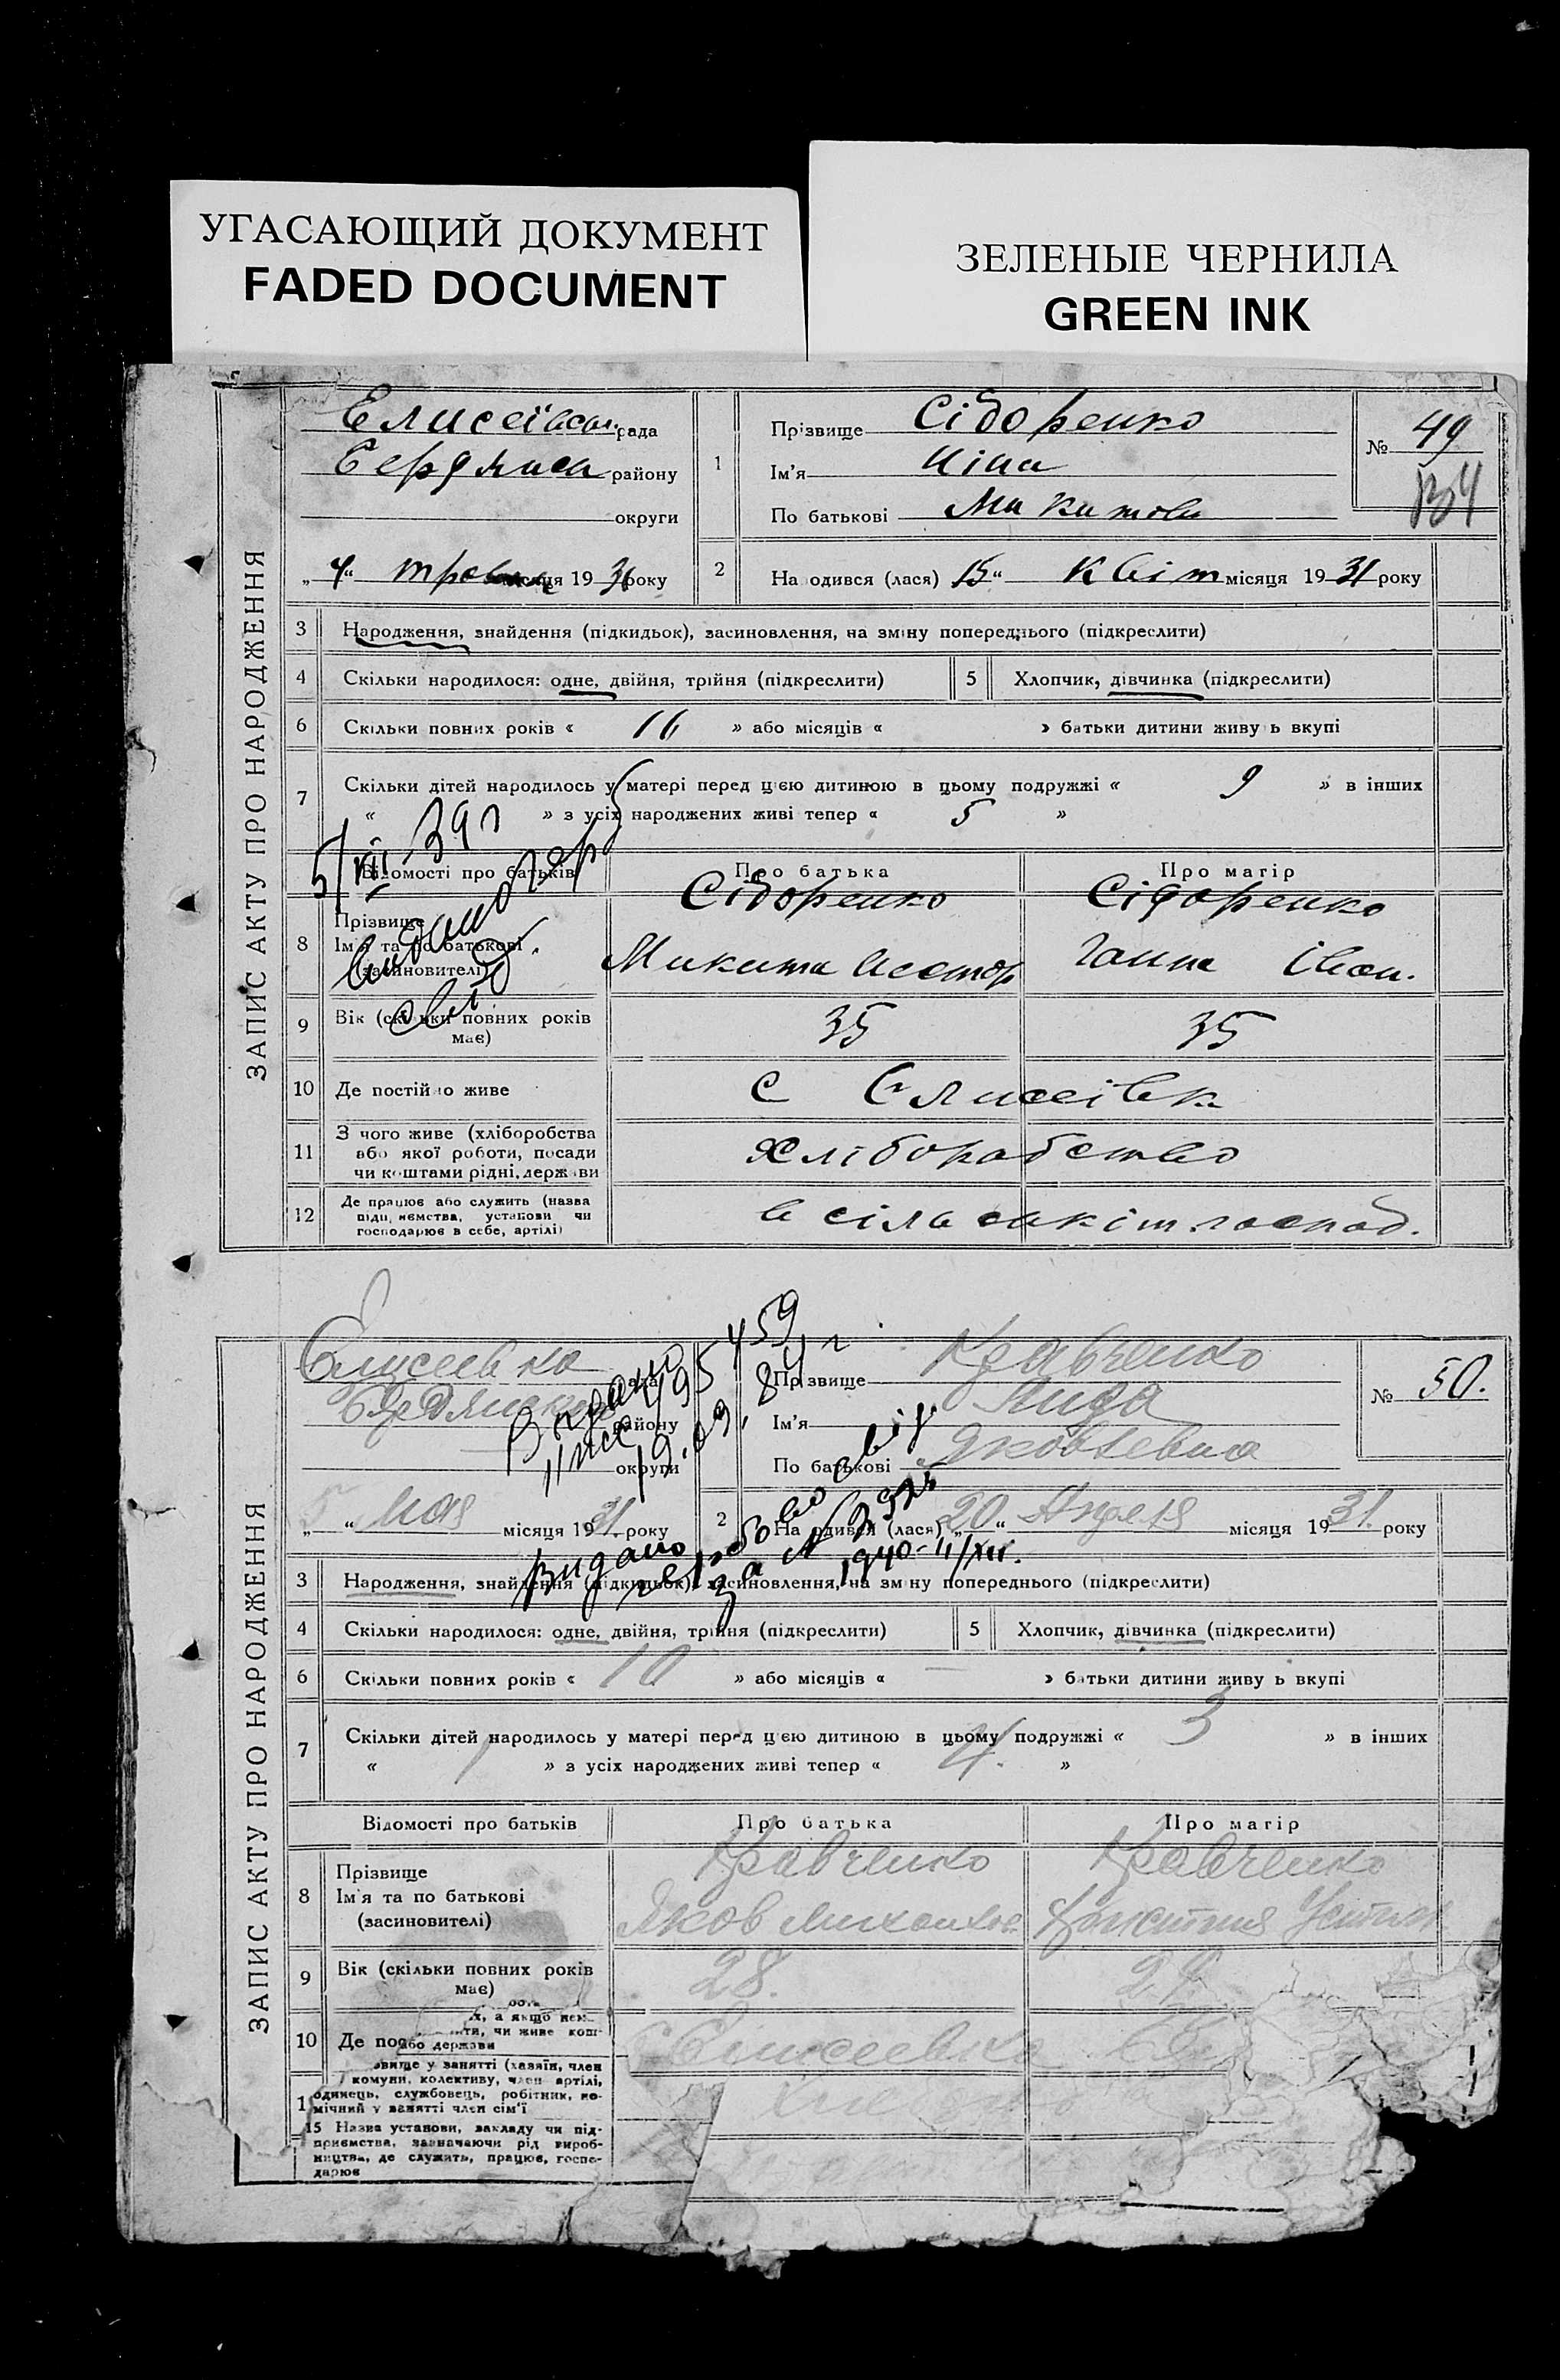 УГАСАЮЩИЙ ДОКУМЕНТ
FADED DOCUMENT
ЗЕЛЕНЫЕ ЧЕРНИЛА
GREEN INK
ЗАПИС АКТУ ПРО НАРОДЖЕННЯ
Елисеївськ. рада
району
округи
1
Прізвище Сідоренко
Ім'я Ніна
По батькові Микитовн
№ 49
„4“ травня місяця 1931 року
2 Народився (лася) 15 “ Квітн місяця 1931 року
3 Народження, знайдення (підкидьок), засиновлення, на зміну попереднього (підкреслити)
4 Скільки народилося: одне, двійня, трійня (підкреслити)
5 Хлопчик, дівчинка (підкреслити)
6 Скільки повних років « 16 » або місяців « » батьки дитини живу ь вкупі
7 Скільки дітей народилось у матері перед цією дитиною в цьому подружжі « 9 » в інших
« » з усіх народжених живі тепер « 5 »
5/VII 39 г
Відомості про батьків
Про батька
Про матір
8 Прізвище
Ім'я та по батькові
(засиновителі)
Сідоренко
Микита Нестор
Сідоренко
Ганна Іван.
9 Вік (скільки повних років має)
35
35
10 Де постійно живе
с Єлисеівк
11 З чого живе (хліборобства
або якої роботи, посади
чи коштами рідні, держави
хліборобство
12 Де працює або служить (назва
підприємства, установи чи
господарює в себе, артілі)
в сільськім господ.
ЗАПИС АКТУ ПРО НАРОДЖЕННЯ
Елисеевка рада
району
округи
1
Прізвище Кравченко
Ім'я Лида
По батькові Яковлевна
№ 50.
„5“ мая місяця 1931. року
2 Народився (лася) „20“ Апреля місяця 1931. року
Видано
19.09.84 г
Видано
за № 
1940-11/XII.
3 Народження, знайдення (підкидьок), засиновлення, на зміну попереднього (підкреслити)
4 Скільки народилося: одне, двійня, трійня (підкреслити)
5 Хлопчик, дівчинка (підкреслити)
6 Скільки повних років « 10 » або місяців « — » батьки дитини живу ь вкупі
7 Скільки дітей народилось у матері перед цією дитиною в цьому подружжі « 3 » в інших
« / » з усіх народжених живі тепер « 4. »
Відомості про батьків
Про батька
Про матір
8 Прізвище
Ім'я та по батькові
(засиновителі)
Кравченко
Яков Михайлов
Кравченко
9 Вік (скільки повних років має)
28.
10 Де по
Елисеевка
х, а якщо нем
ти, чи живе кош-
або держави
овище у занятті (хазяїн, член
комуни, колективу, член артілі,
одинець, службовець, робітник, по-
мічний у занятті член сім'ї
15 Назва установи, закладу чи під-
приємства, зазначаючи рід вироб-
ництва, де служить, працює, госпо-
дарює